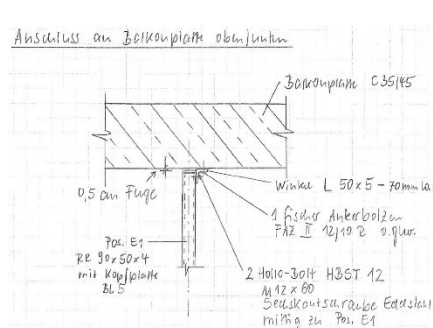 Anschluss an Balkonplatte oben/unten
Balkonplatte C35/45
0,5 cm Fuge
Winkel L 50x5 - 70mm la
1 fischer Ankerbolzen
FAZ II 12/10 R o.glw.
Pos. E1
RR 90x50x4
mit Kopfplatte
BL 5
2 Hollo-Bolt HBST 12
M12 x 60
Sechskantschraube Edelstahl
mittig zu Pos. E1